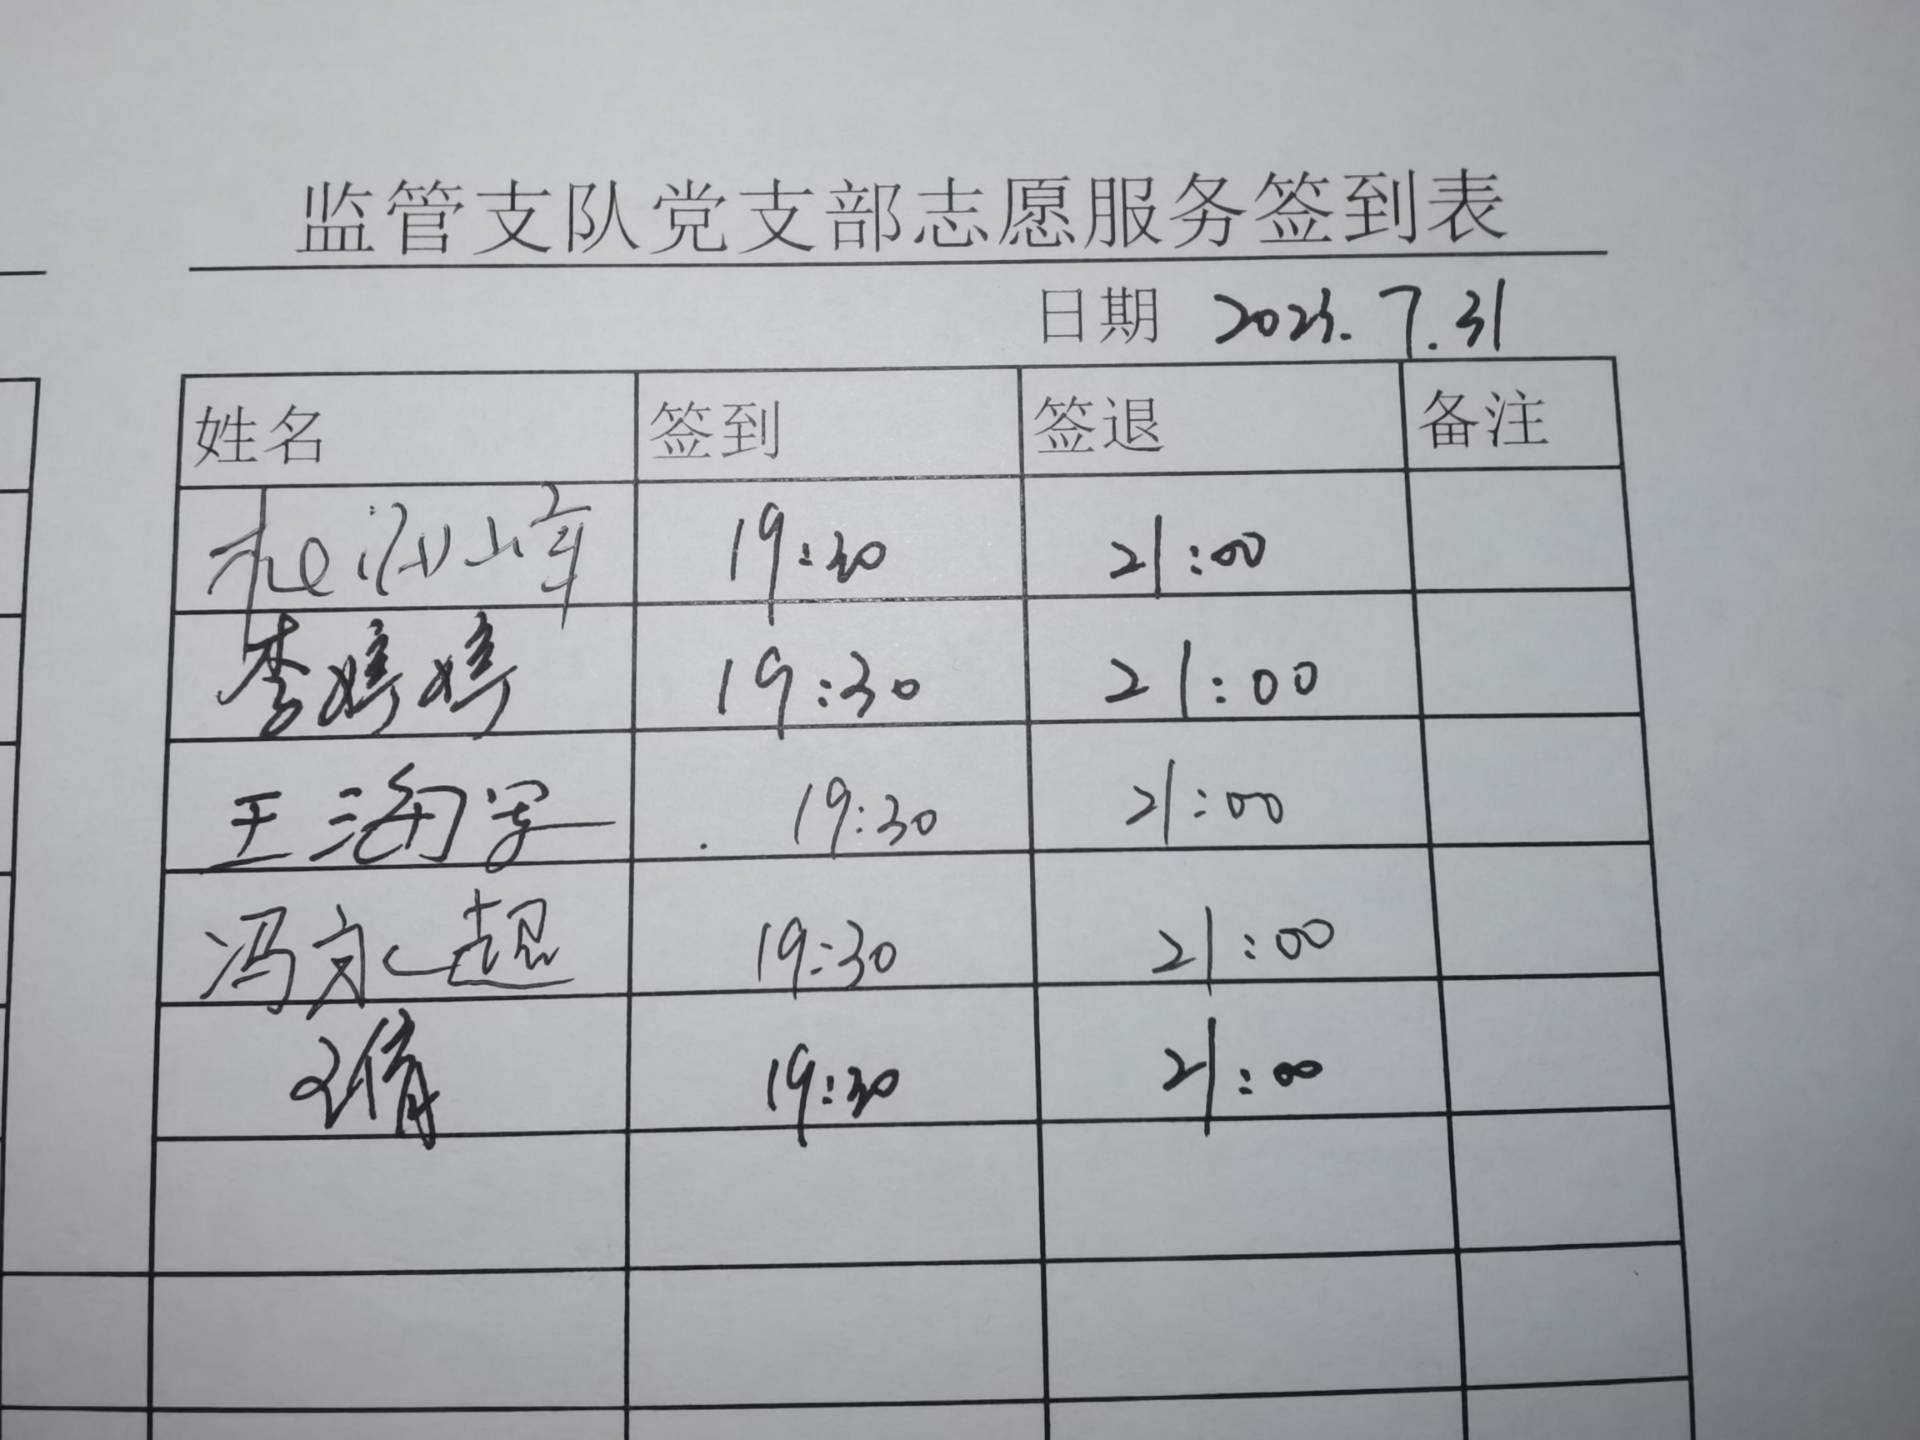 监管支队党支部志愿服务签到表
日期 2023.7.31
姓名 签到 签退 备注
19:30 21:00
李婷婷 19:30 21:00
王海军 19:30 21:00
冯文超 19:30 21:00
王倩 19:30 21:00